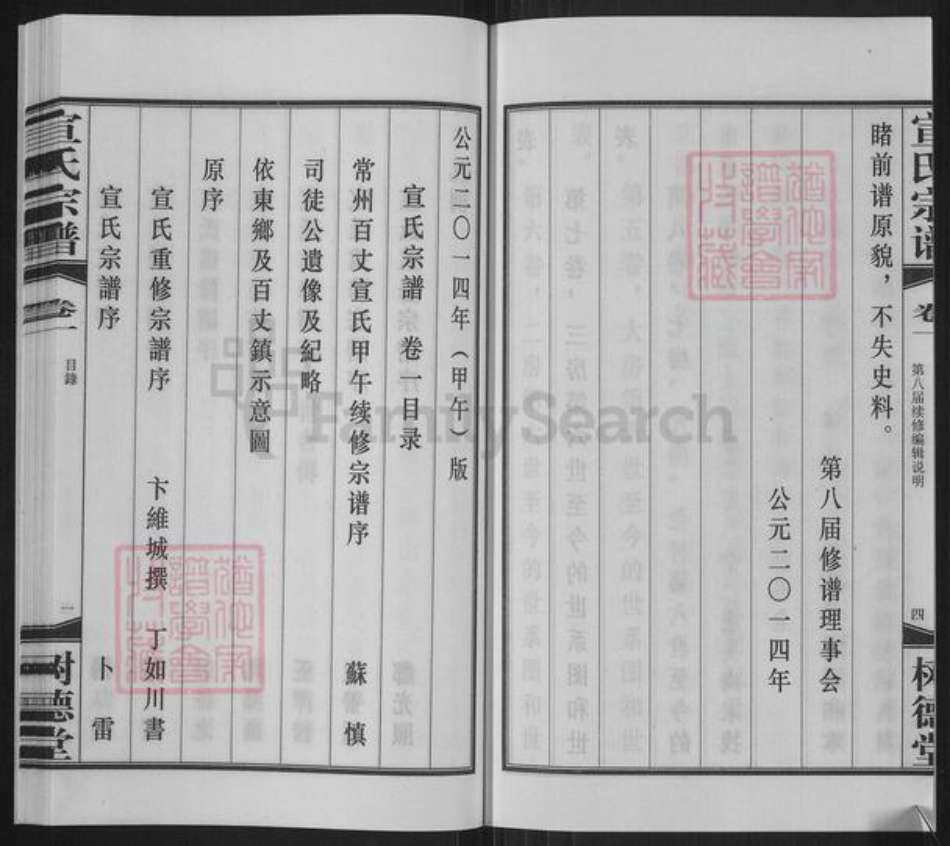 宣氏宗谱
卷一
第八届续修编辑说明
四
树德堂
睹前谱原貌，不失史料。
第八届修谱理事会
公元二〇一四年
公元二〇一四年（甲午）版
宣氏宗譜 卷一目录
常州百丈宣氏甲午续修宗谱序 蘇慎
司徒公遺像及紀略
依東鄉及百丈鎮示意圖
原序
宣氏重修宗譜序 卞維城撰 丁如川書
宣氏宗譜序 卜雷
宣氏宗譜
卷一
目錄
一
树德堂
FamilySearch